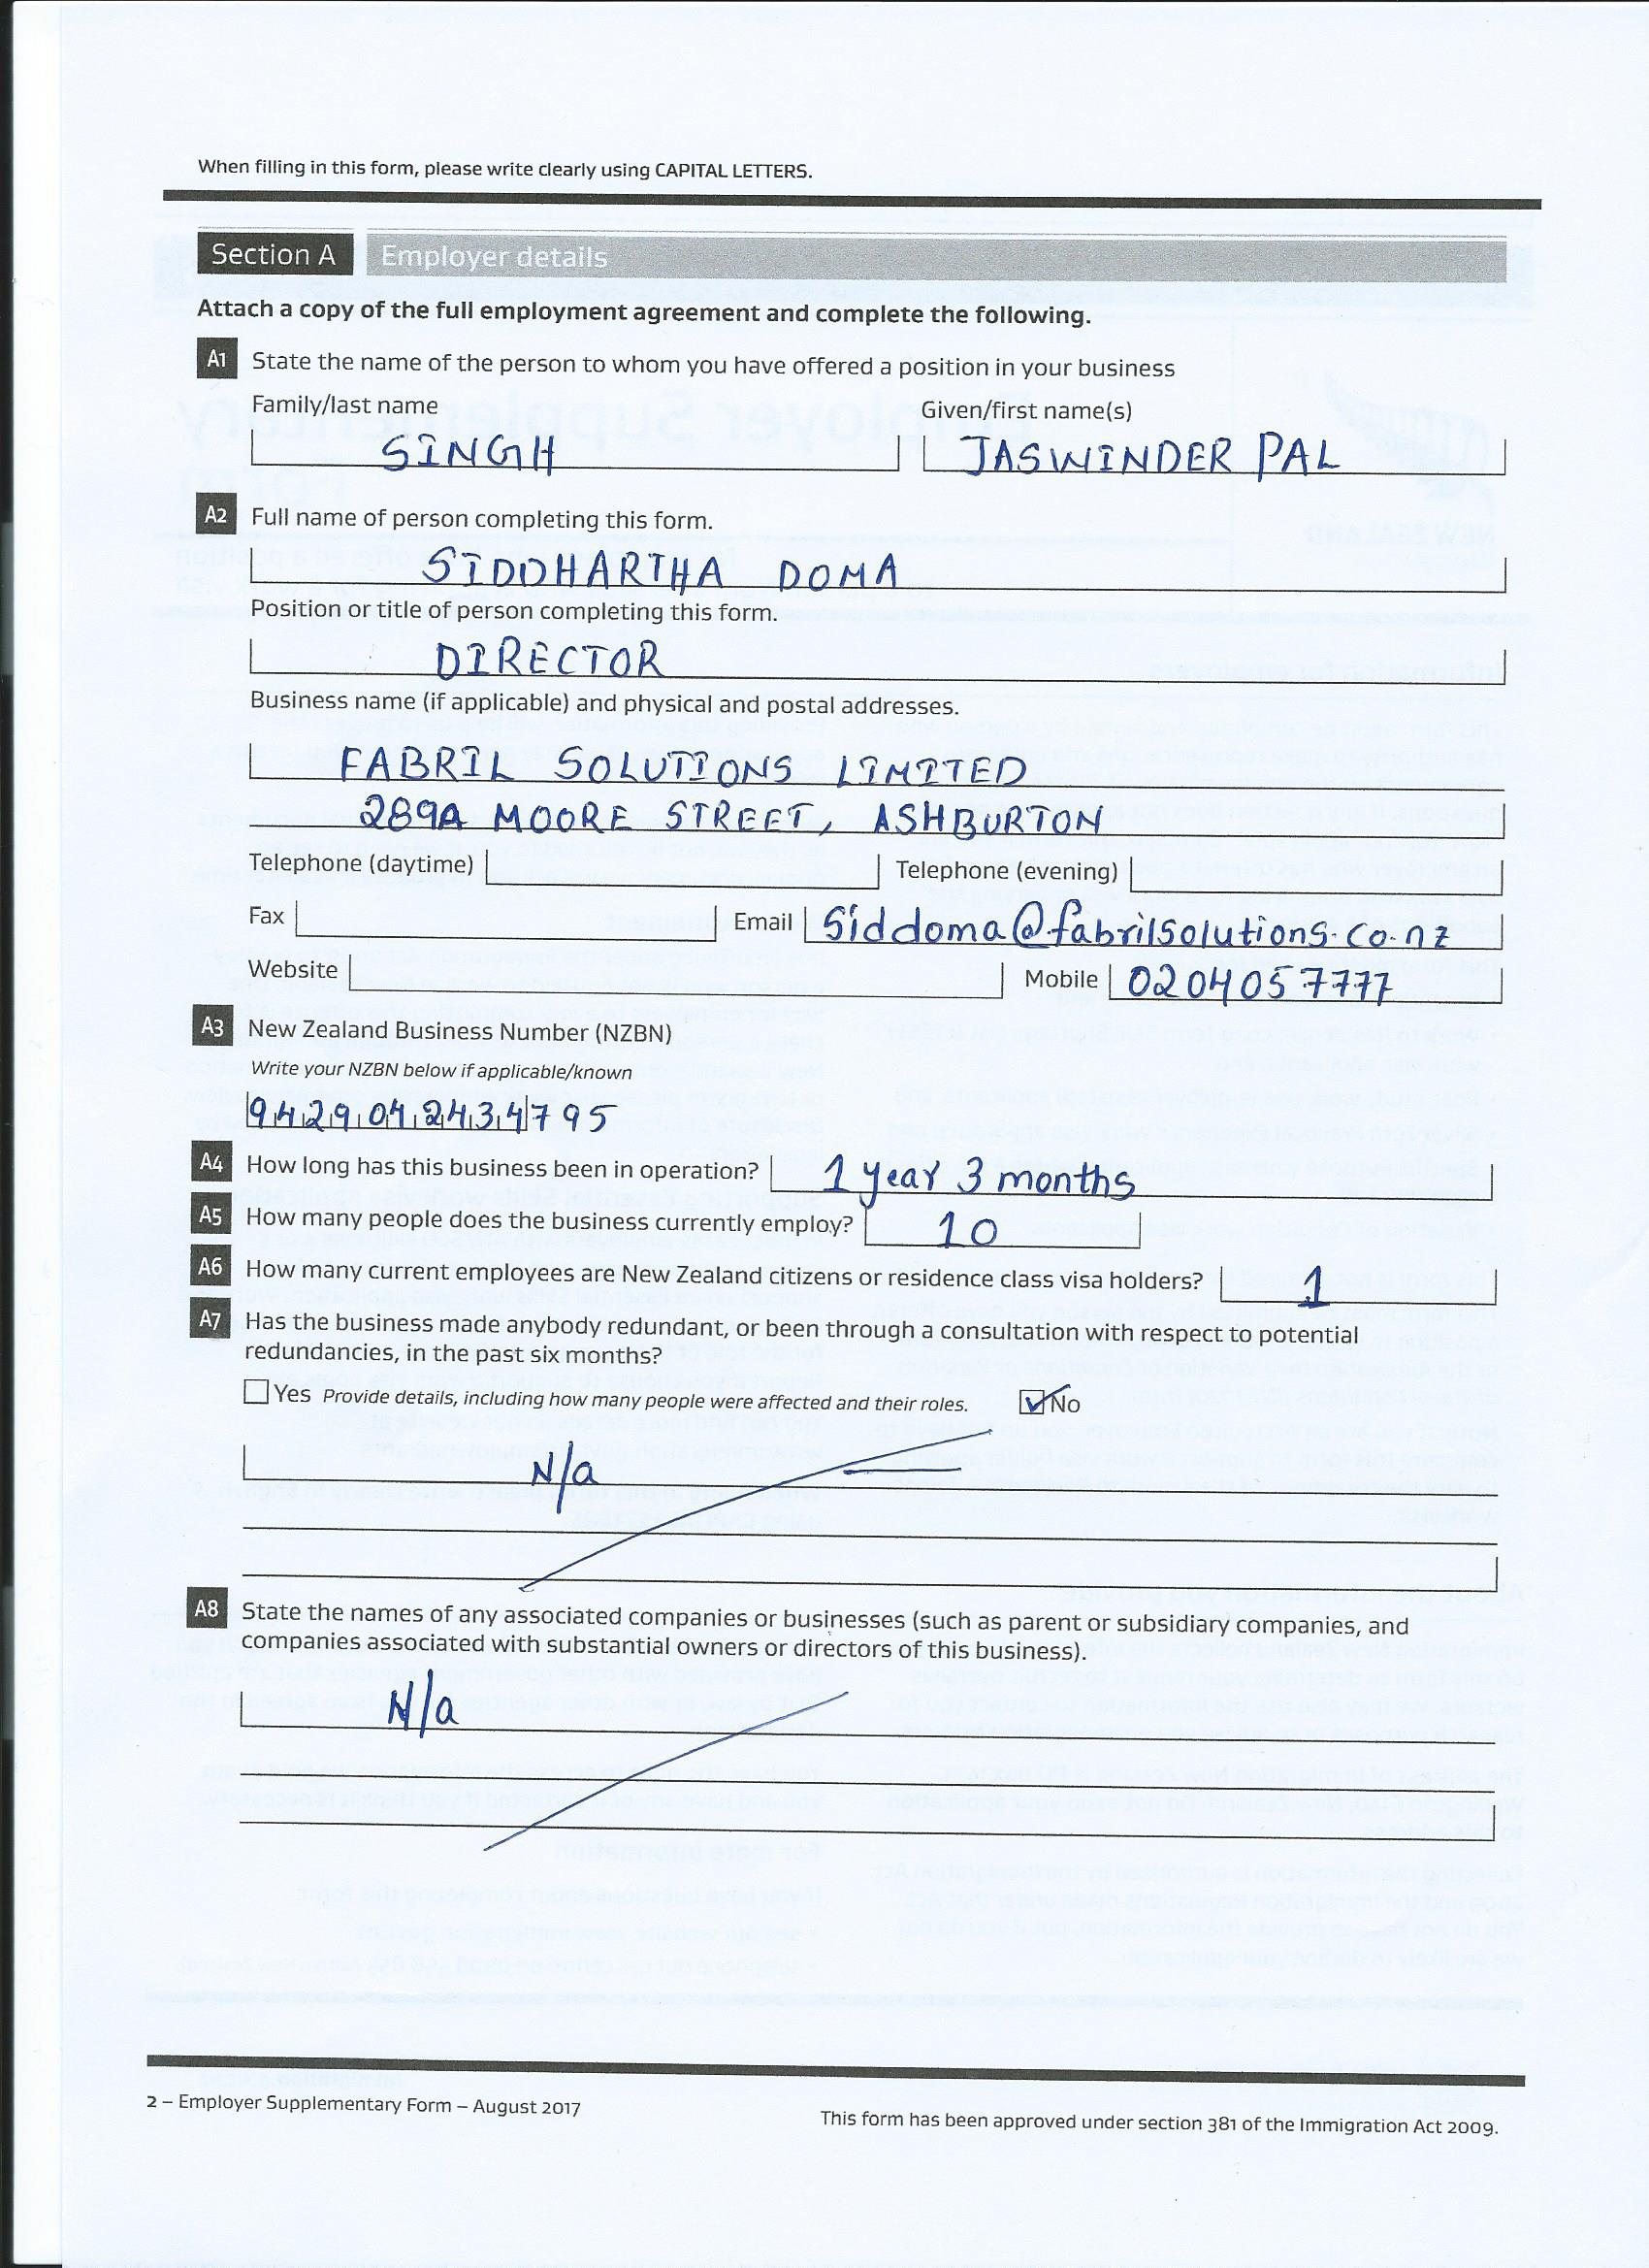 When filling in this form, please write clearly using CAPITAL LETTERS.
Section A Employer details
Attach a copy of the full employment agreement and complete the following.
A1 State the name of the person to whom you have offered a position in your business
Family/last name Given/first name(s)
SINGH JASWINDER PAL
A2 Full name of person completing this form.
SIDDHARTHA DOMA
Position or title of person completing this form.
DIRECTOR
Business name (if applicable) and physical and postal addresses.
FABRIL SOLUTIONS LIMITED
289A MOORE STREET, ASHBURTON
Telephone (daytime) Telephone (evening)
Fax Email Siddoma@fabrilsolutions.co.nz
Website Mobile 0204057777
A3 New Zealand Business Number (NZBN)
Write your NZBN below if applicable/known
9429042434795
A4 How long has this business been in operation? 1 year 3 months
A5 How many people does the business currently employ? 10
A6 How many current employees are New Zealand citizens or residence class visa holders? 1
A7 Has the business made anybody redundant, or been through a consultation with respect to potential
redundancies, in the past six months?
Yes Provide details, including how many people were affected and their roles. No
N/a
A8 State the names of any associated companies or businesses (such as parent or subsidiary companies, and
companies associated with substantial owners or directors of this business).
N/a
2 – Employer Supplementary Form – August 2017
This form has been approved under section 381 of the Immigration Act 2009.